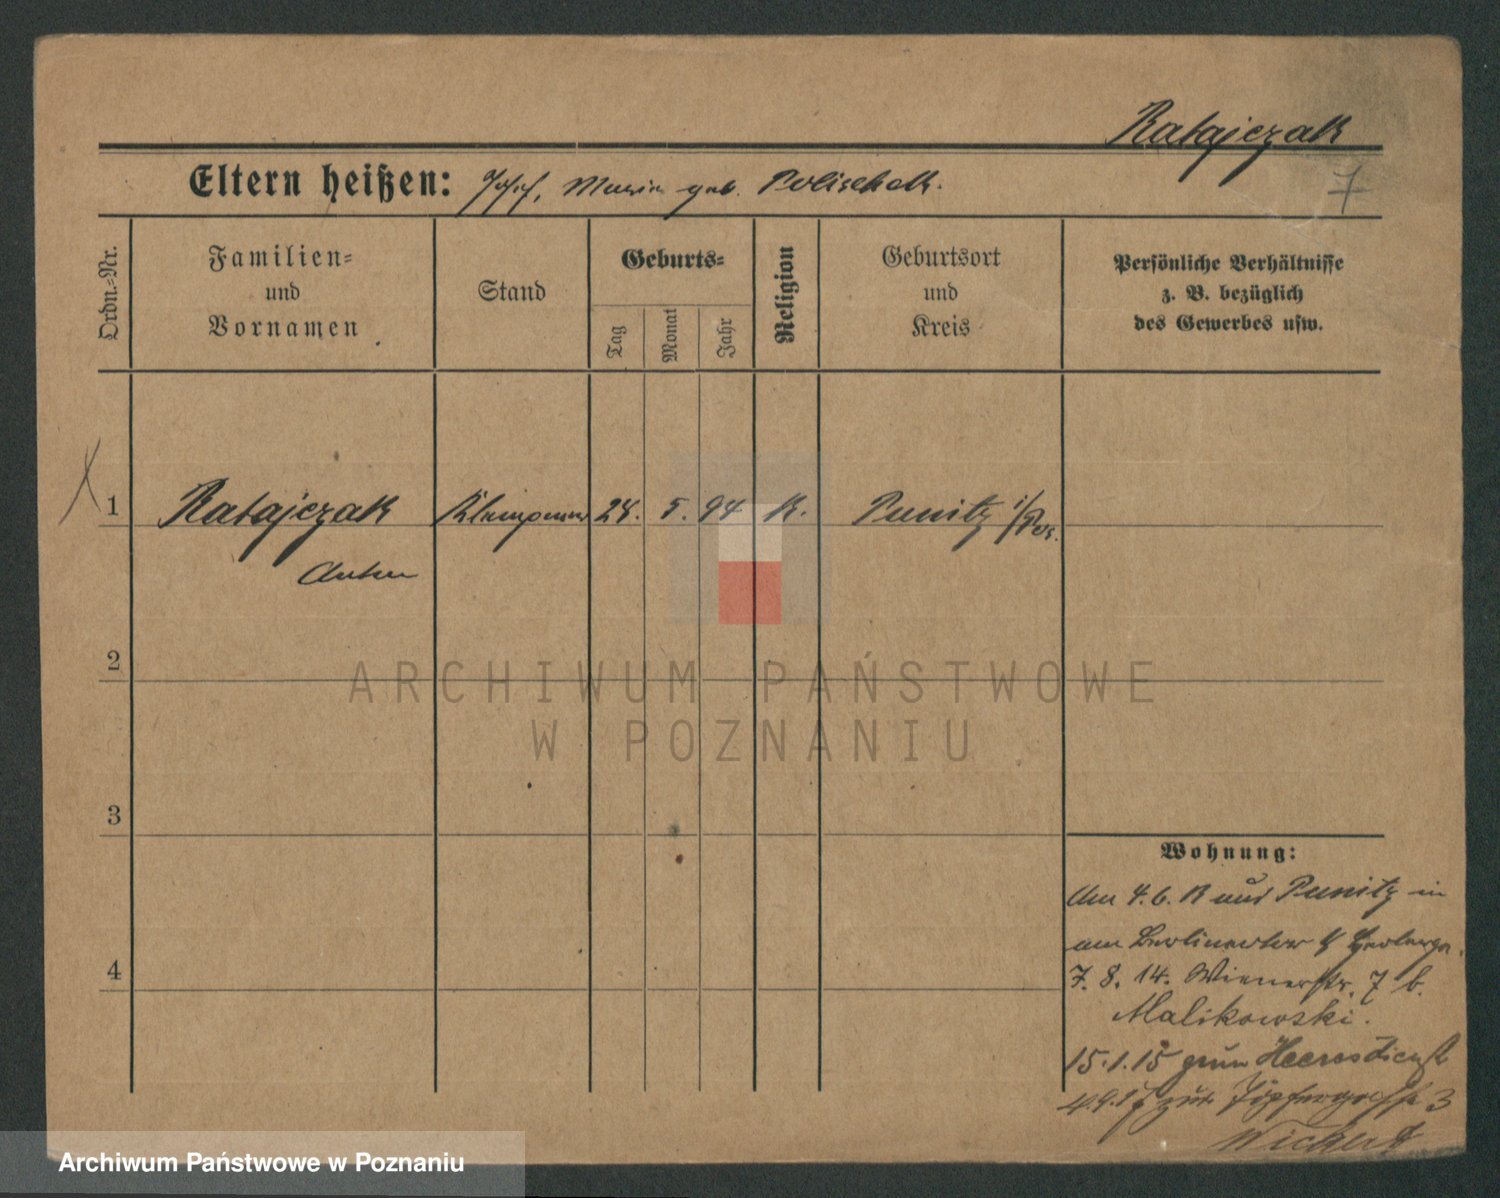 Ratajczak
Eltern heißen: Josef, Maria geb. Polischak.
7
Ordn.-Nr.
Familien-
und
Vornamen
Stand
Geburts-
Tag
Monat
Jahr
Religion
Geburtsort
und
Kreis
Persönliche Verhältnisse
z. B. bezüglich
des Gewerbes usw.
1 Ratajczak Klempner 28. 5. 94 K. Punitz i/Pos.
Anton
2
ARCHIWUM PAŃSTWOWE
W POZNANIU
3
4
Wohnung:
Am 4.6. 13 aus Punitz in
am Berlinertor
7. 8. 14. Wienerstr. 7 b.
Malikowski.
15.1.15 zum Heeresdienst
4.9.17 zur. Töpfergasse 3
Wickert
Archiwum Państwowe w Poznaniu